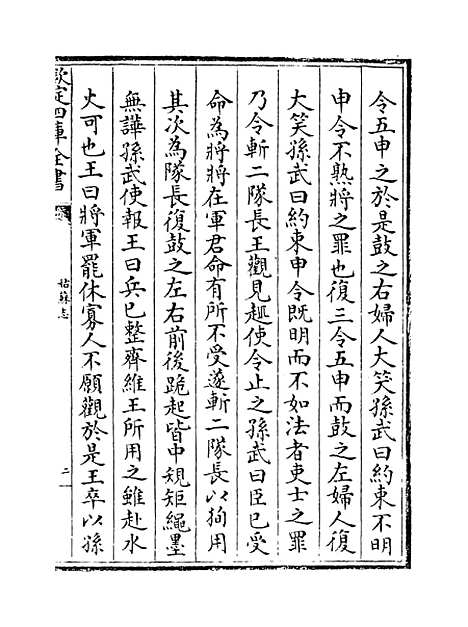 令五申之於是鼓之右婦人大笑孫武曰約束不明
申令不熟將之罪也復三令五申而鼓之左婦人復
大笑孫武曰約束申令既明而不如法者吏士之罪
乃令斬二隊長王觀見趣使令止之孫武曰臣已受
命為將將在軍君命有所不受遂斬二隊長以狥用
其次為隊長復鼓之左右前後跪起皆中規矩繩墨
無譁孫武使報王曰兵已整齊維王所用之雖赴水
火可也王曰將軍罷休寡人不願觀於是王卒以孫
欽定四庫全書
姑蘇志
二